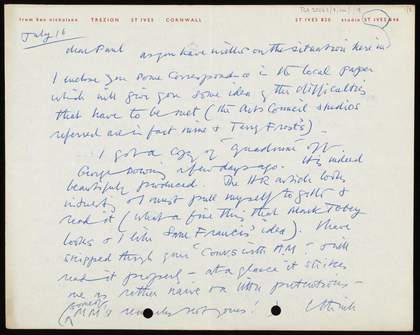 from ben nicholson TREZION ST IVES CORNWALL ST IVES 830 studio ST IVES 848
July 16
dear Paul as you have written on the situation here in
I enclose you some correspondence in the local paper
which will give you some idea of the difficulties
that have to be met (the Arts Council studios
referred are in fact mine & Terry Frost's).
I got a copy of "quadrum" off
George a few days ago. It is indeed
beautifully produced. The HR article looks
interesting & I must pull myself together &
read it (what a fine thing that Mark Tobey
looks & I like Sam Francis' idea). I have
skipped through your "Convs with A.M." & will
read it properly – at a glance it strikes
me as rather naive
remarks not yours!